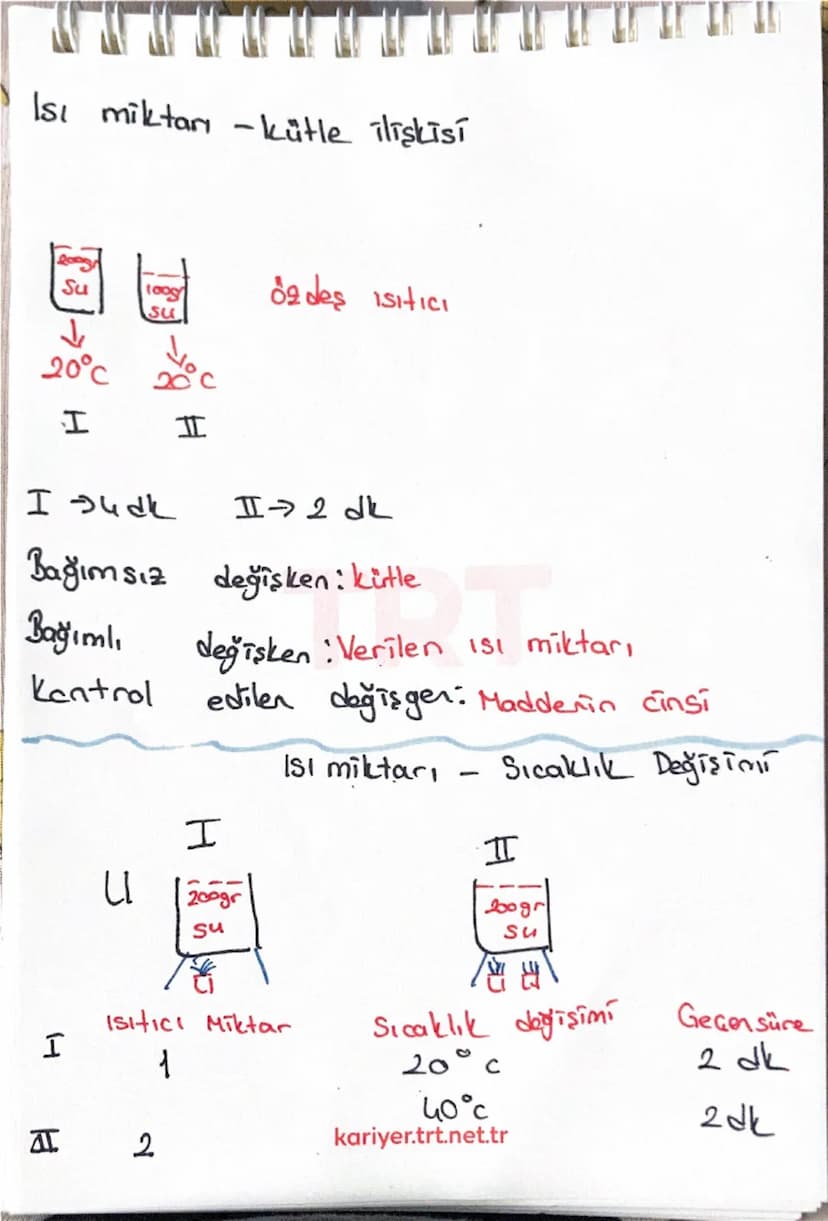 Isı miktarı - kütle ilişkisi
200gr
su
100gr
su
özdeş ısıtıcı
20°C
20°C
I
II
I → 4 dk II → 2 dk
Bağımsız değişken: kütle
Bağımlı değişken: Verilen ısı miktarı
Kontrol edilen değişgen: Maddenin cinsi
TRT
Isı miktarı - Sıcaklık Değişimi
I
II
U
200gr
su
200gr
su
Isıtıcı Miktar Sıcaklık değişimi Geçen süre
I 1 20°C 2 dk
II 2 40°C 2 dk
kariyer.trt.net.tr